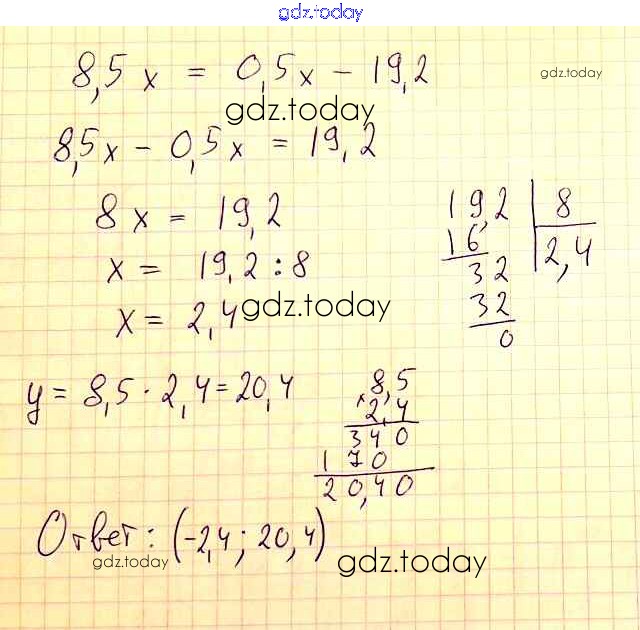 gdz.today
8,5x = 0,5x - 19,2
gdz.today
gdz.today
8,5x - 0,5x = 19,2
8x = 19,2
x = 19,2 : 8
x = 2,4
gdz.today
19,2 | 8
16 | 2,4
32
32
0
y = 8,5 · 2,4 = 20,4
8,5
× 2,4
340
170
20,40
Ответ: (-2,4; 20,4)
gdz.today
gdz.today